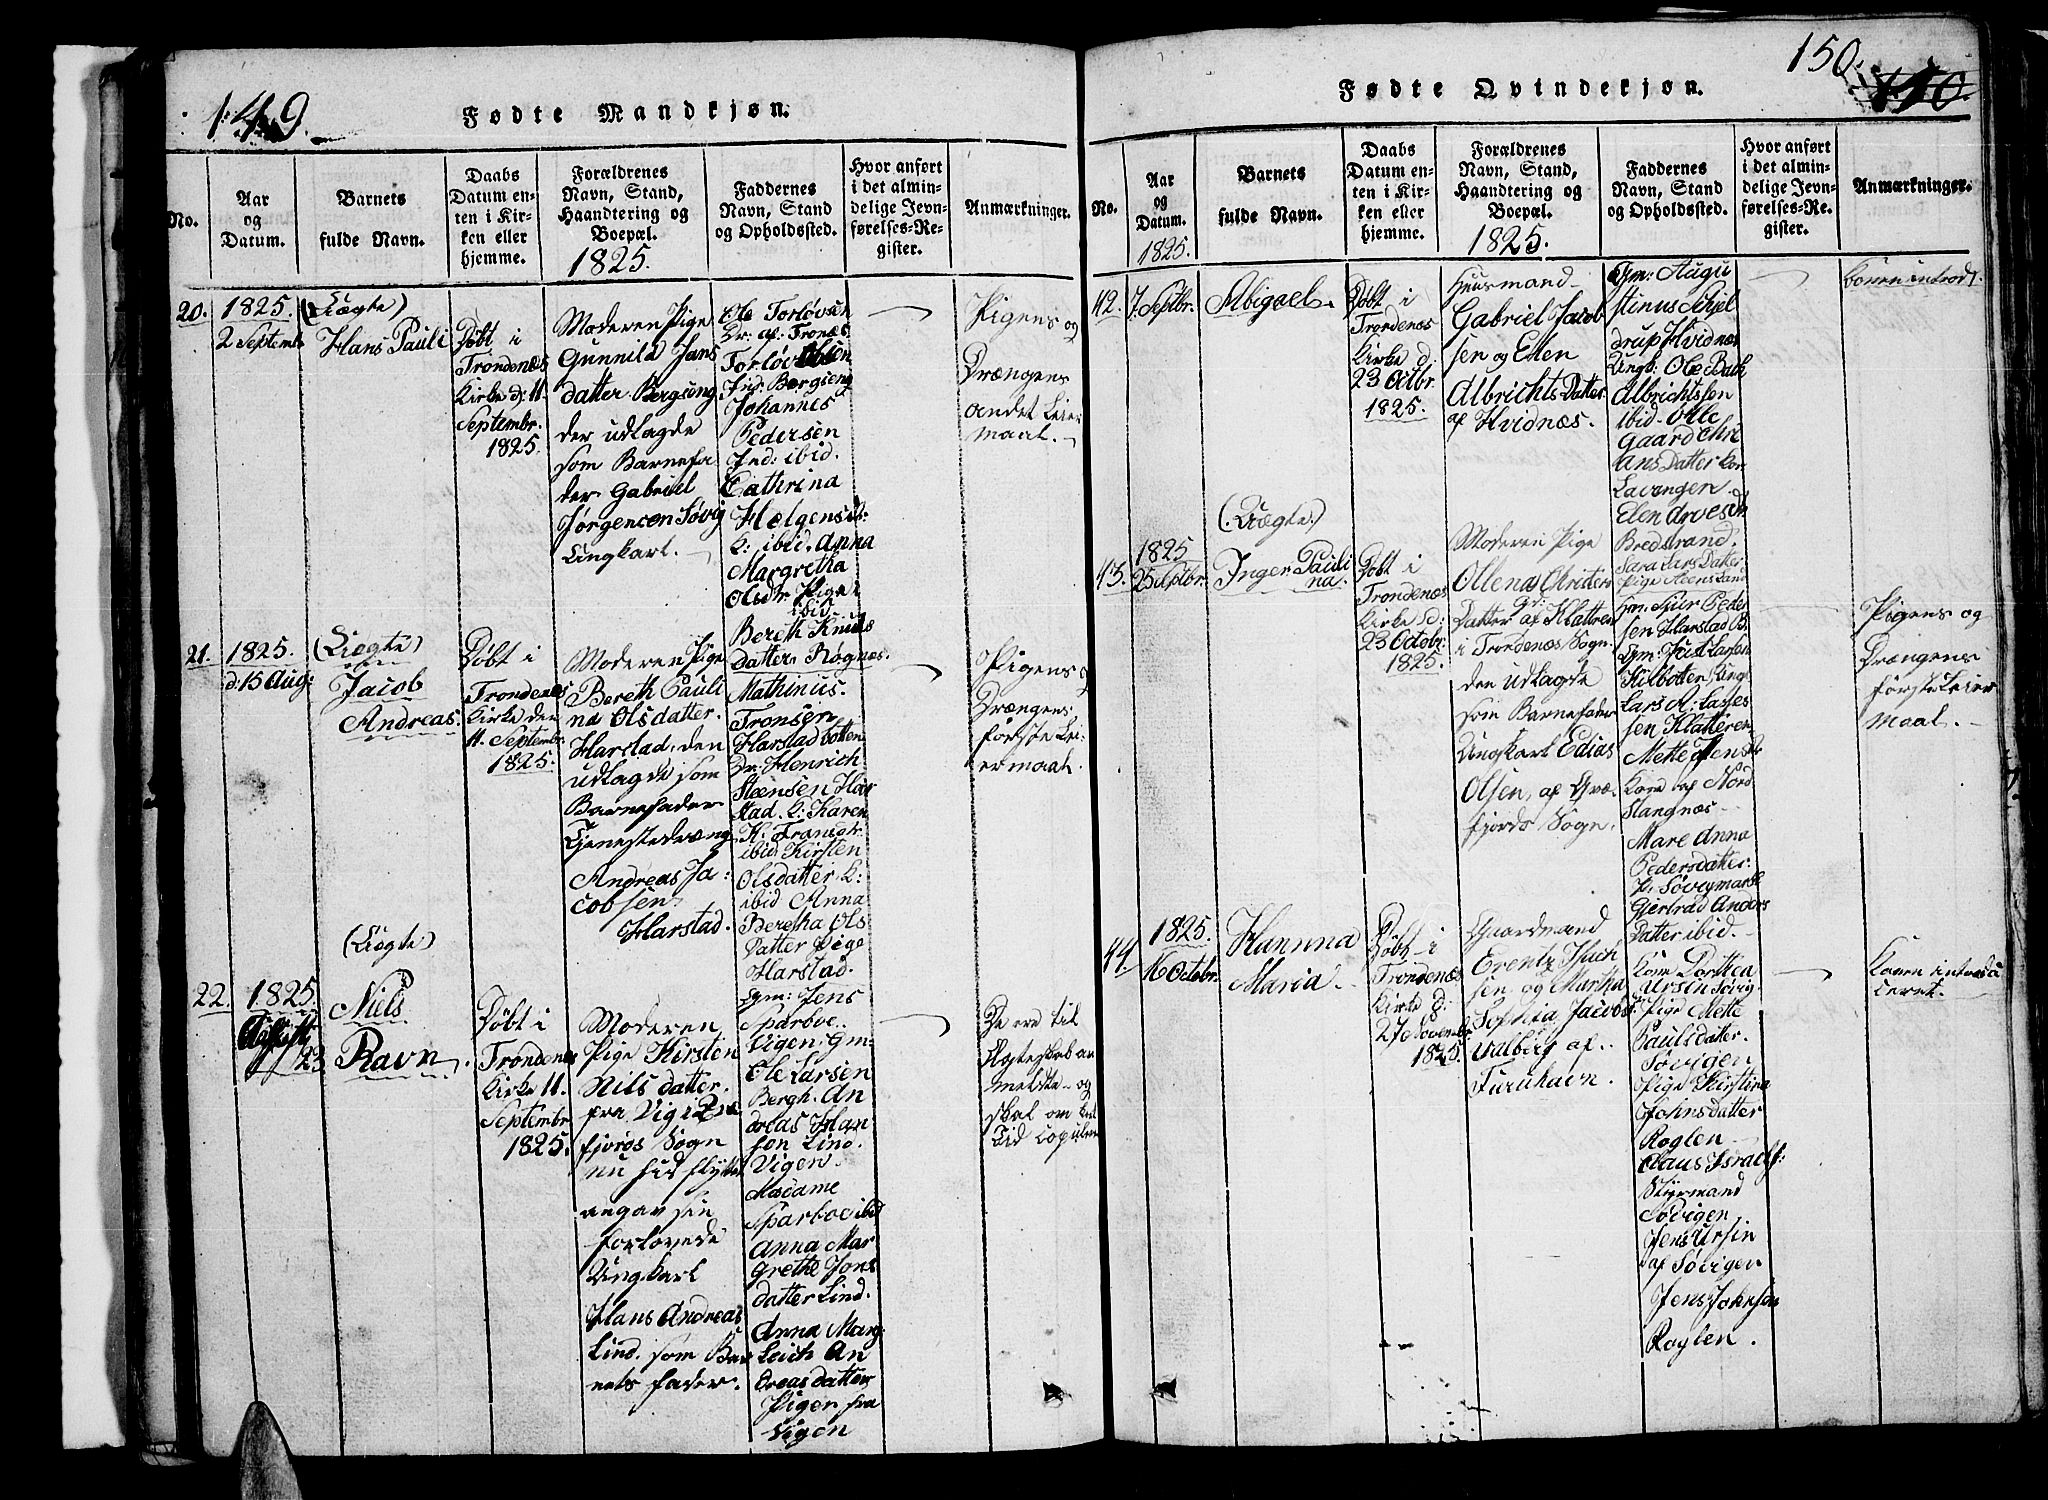 149.
Fødte Mandkjøn.
No.
Aar
og
Datum.
Barnets
fulde Navn.
Daabs
Datum en-
ten i Kir-
ken eller
hjemme.
Forældrenes
Navn, Stand,
Haandtering og
Boepæl.
1825.
Faddernes
Navn, Stand
og Opholdssted.
Hvor anført
i det almin-
delige Jevn-
førelses-Re-
gister.
Anmærkninger.
20.
1825.
2 Septembr
(Uægte)
Hans Pauli
Døbt i
Trondenæs
Kirke d: 11
Septembr.
1825.
Moderen Pige
Gunnild Jans
datter Bergseng
der udlagde
som Barnefa
der Gabriel
Jørgensen Søvig
Ungkarl.
Ole Torløvsen
Dr. af: Tronæs
Torløv Olsen
Ind: Bergseng
Johannes
Pedersen
Ind: ibid.
Cathrina
Helgensdr:
K: ibid. Anna
Margretha
Olsdr Pige
ibid.
Bereth Knuds
datter Røgnæs.
Pigens og
Drængens
andet Leier
maal.
21.
1825.
d: 15 Aug:
(Uægte)
Jacob
Andreas.
Døbt i
Trondenæs
Kirke den
11. Septembr
1825.
Moderen Pige
Bereth Pauli
na Olsdatter.
Harstad, den
udlagde som
Barnefader
Tjenestedræng
Andreas Ja:
cobsen
Harstad.
Mathinus
Tronsen
Harstadbotten
Dr: Henrich
Steensen Har
stad. K: Karen
K. Transdr.
ibid. Kirsten
Olsdatter K:
ibid Anna
Beretha Ols
Datter Pige
Harstad.
Pigens og
Drængens
første Lei-
ermaal.
22.
1825.
23
(Uægte)
Niels
Ravn.
Døbt i
Trondenæs
Kirke 11.
Septembr
1825.
Moderen
Pige Kirsten
Nils datter.
fra Vig i Qvæ
fjords Sogn
nu hid flyttet
angav sin
forlovede
Ungkarl
Hans Andreas
Lind. som Bar
nets fader.
Gm: Jens
Sparboe.
Vigen: Gm:
Ole Larsen
Bergh. An
dreas Han
sen Lind.
Vigen.
Madame
Sparboe ibid
Anna Mar
grethe Jons
datter Lind.
Anna Marg:
Leich An
dreasdatter
Piger fra
Vigen
De ere til
Ægteskab an
meldte og
skal om kort
Tid copuleres
150.
Fødte Qvindekjøn.
No.
Aar
og
Datum.
1825.
Barnets
fulde Navn.
Daabs
Datum en-
ten i Kir-
ken eller
hjemme.
Forældrenes
Navn, Stand,
Haandtering og
Boepæl.
1825.
Faddernes
Navn, Stand
og Opholdssted.
Hvor anført
i det almin-
delige Jevn-
førelses-Re-
gister.
Anmærkninger.
42.
7. Septbr.
Abigael.
Døbt i
Trondenæs
Kirke d:
23 Octbr.
1825.
Huusmand
Gabriel Jacob
sen og Elen
Albrichts Datter
af Hvidnæs.
Gm: Augu
stinus Kjel
drup Hvidnæs
Ungk: Ole Bath
Albrichtssen
ibid. Olle
gaard Chri
ansdatter Kor
Lavangen
Bredstrand.
Sara Lars Datter
Konen introd.
43.
1825
25 Septbr.
(Uægte)
Inger Pauli
na.
Døbt i
Trondenæs
Kirke d:
23 Octobr
1825.
Moderen Pige
Ollena Christens
Datter af Klattren
i Trondenæs Sogn.
den udlagde
som Barnefader
Ungkarl Edias
Olsen, af Qvæ
fjords Sogn.
sen Harstad B.
Gm: Just Larsen
Kilbotten Ung
Lars A: Lasses
sen Klatteren
Mette Jensdr
Kone af Nord
Stangnæs
Mare Anna
Pedersdatter
P: Søvigmark
Gjertrud Anders
Datter ibid.
Pigens og
Drængens
første Leier
maal.
44.
1825.
16 Octobr.
Hannna
Maria.
Døbt i
Trondenæs
Kirke d:
27 November
1825.
Guardmand
Erentz Thuch
sen og Martha
Sophia Jacobs
Valberg af
Furuhavn.
Kone Dorthea
Ursin Søvig.
Pige Mette
Paulsdatter
Søvigen
Pige Kirstina
Johnsdatter
Roglen
Claus Israels:
Styrmand
Søvigen
Jens Ursin
af Søvigen
Jens Johnsen
Roglen.
Konen introdu
ceret.